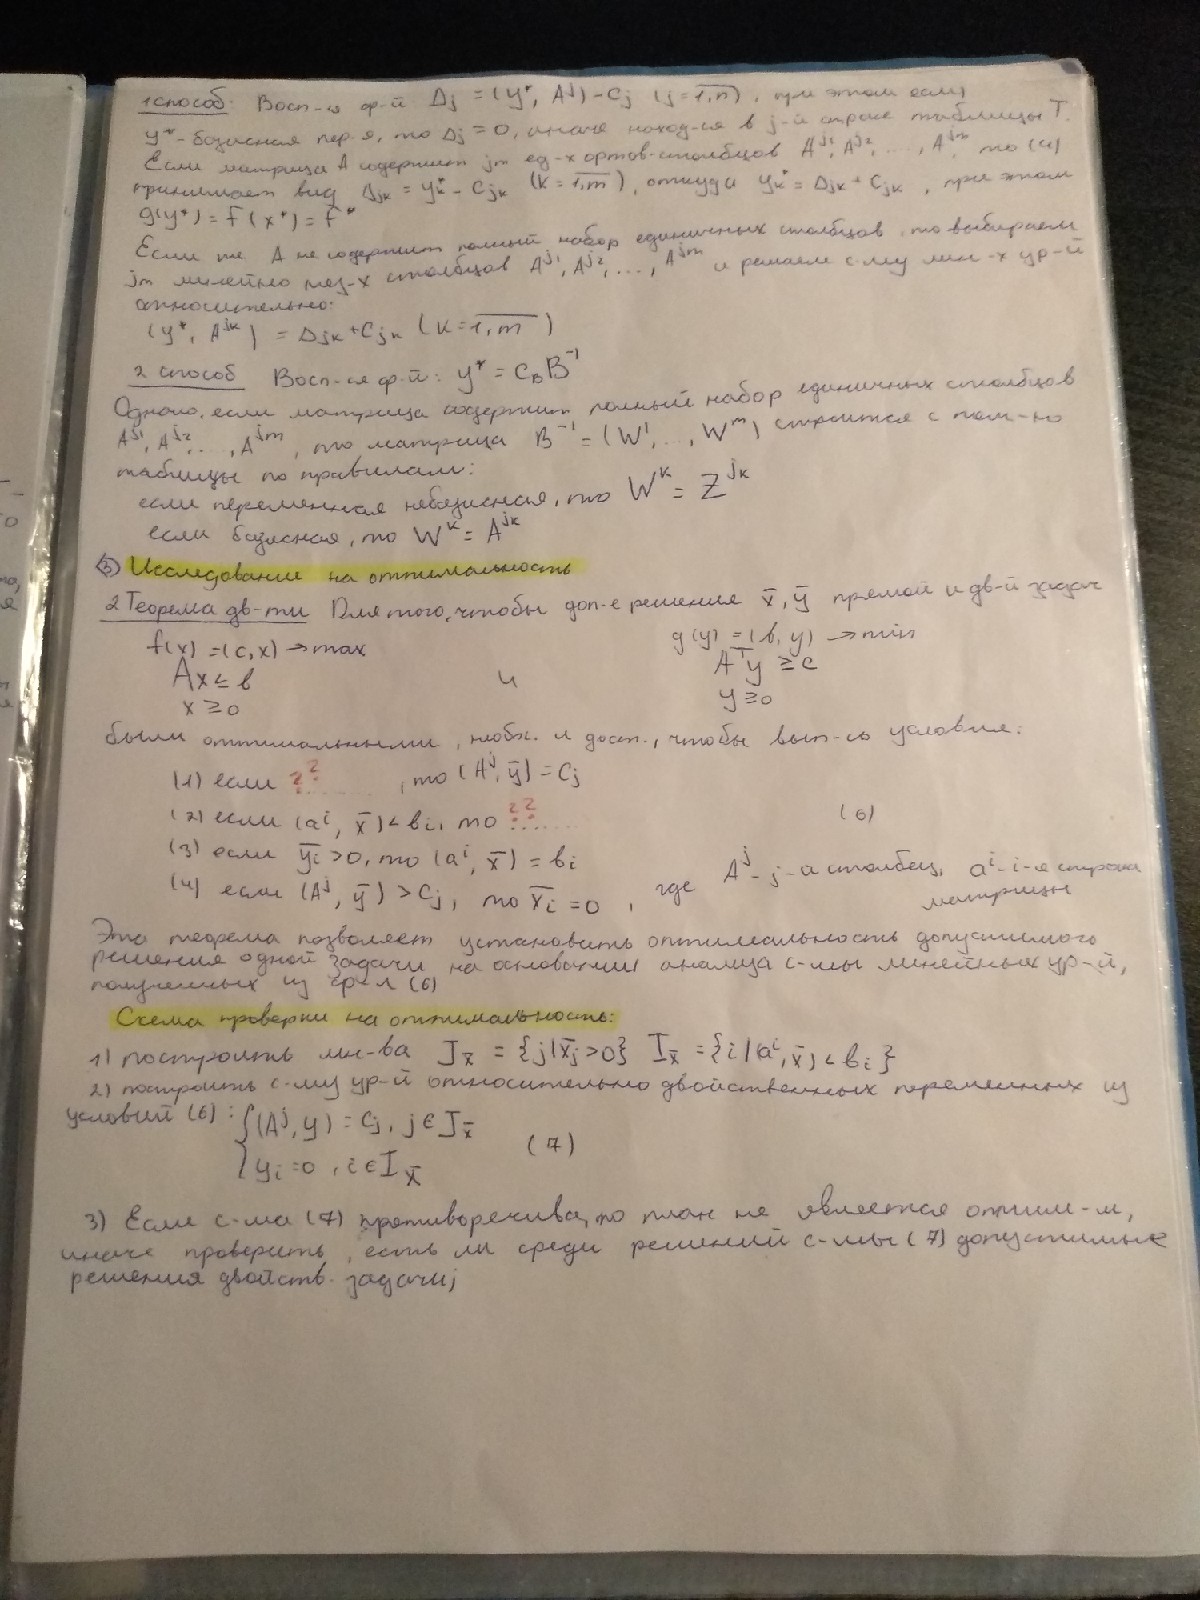 1 способ: Восп-ся ф-й Δj = (y*, Aʲ) - Cj (j = 1,n), при этом если
y* - базисная пер-я, то Δj = 0, иначе наход-ся в j-й строке таблицы T.
Если матрица A содержит jm ед-х ортов-столбцов Aʲ¹, Aʲ², ..., Aʲᵐ, то (4)
принимает вид Δjk = yk* - Cjk (k = 1,m), откуда yk* = Δjk + Cjk, при этом
g(y*) = f(x*) = f*
Если же A не содержит полный набор единичных столбцов, то выбираем
jm линейно нез-х столбцов Aʲ¹, Aʲ², ..., Aʲᵐ и решаем с-му лин-х ур-й
относительно:
(y*, Aʲᵏ) = Δjk + Cjk (k = 1,m)
2 способ Восп-ся ф-й: y* = C_B B⁻¹
Однако, если матрица содержит полный набор единичных столбцов
Aʲ¹, Aʲ², ..., Aʲᵐ, то матрица B⁻¹ = (W¹, ..., Wᵐ) строится с пом-ю
таблицы по правилам:
если переменная небазисная, то Wᵏ = Zʲᵏ
если базисная, то Wᵏ = Aʲᵏ
③ Исследование на оптимальность
2 Теорема дв-ти Для того, чтобы доп-е решения x̄, ȳ прямой и дв-й задач
f(x) = (c,x) → max g(y) = (b,y) → min
Ax ≤ b и Aᵀy ≥ c
x ≥ 0 y ≥ 0
были оптимальными, необх. и дост., чтобы вып-сь условия:
(1) если ??......., то (Aʲ, ȳ) = Cj
(2) если (aⁱ, x̄) < bi, то ??....... (6)
(3) если ȳi > 0, то (aⁱ, x̄) = bi
(4) если (Aʲ, ȳ) > Cj, то x̄i = 0, где Aʲ - j-й столбец, aⁱ - i-я строка
матрицы
Эта теорема позволяет установить оптимальность допустимого
решения одной задачи на основании анализа с-мы линейных ур-й,
полученных из ф-л (6)
Схема проверки на оптимальность:
1) построить мн-ва Jx̄ = {j | x̄j > 0} Ix̄ = {i | (aⁱ, x̄) < bi}
2) построить с-му ур-й относительно двойственных переменных из
условий (6): {(Aʲ, y) = Cj, j ∈ Jx̄
{yi = 0, i ∈ Ix̄ (7)
3) Если с-ма (7) противоречива, то план не является оптим-м,
иначе проверить, есть ли среди решений с-мы (7) допустимые
решения двойств. задачи;